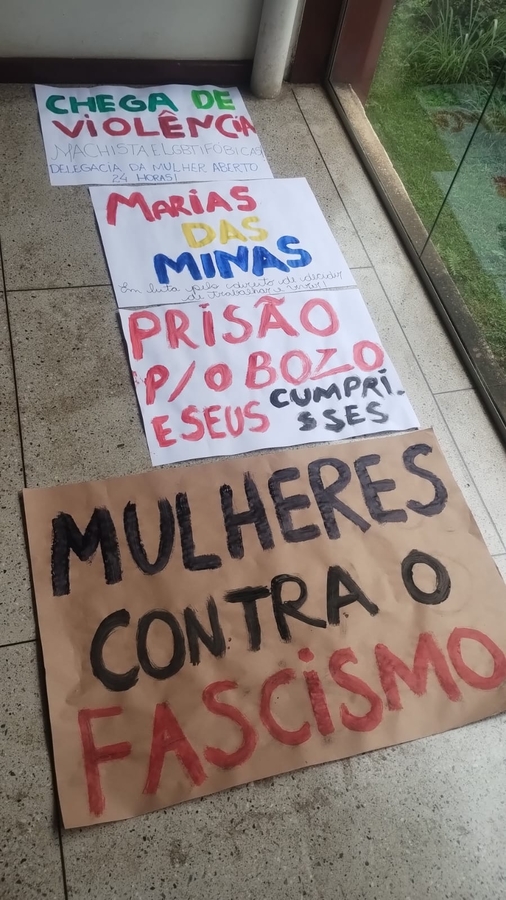 CHEGA DE
VIOLÊNCIA
MACHISTA E LGBTIFÓBICAS
DELEGACIA DA MULHER ABERTO
24 HORAS!
MARIAS
DAS
MINAS
Em luta pelo direito de decidir
de trabalhar e viver!
PRISÃO
P/O BOZO
E SEUS CUMPRI-
SSES
MULHERES
CONTRA O
FASCISMO